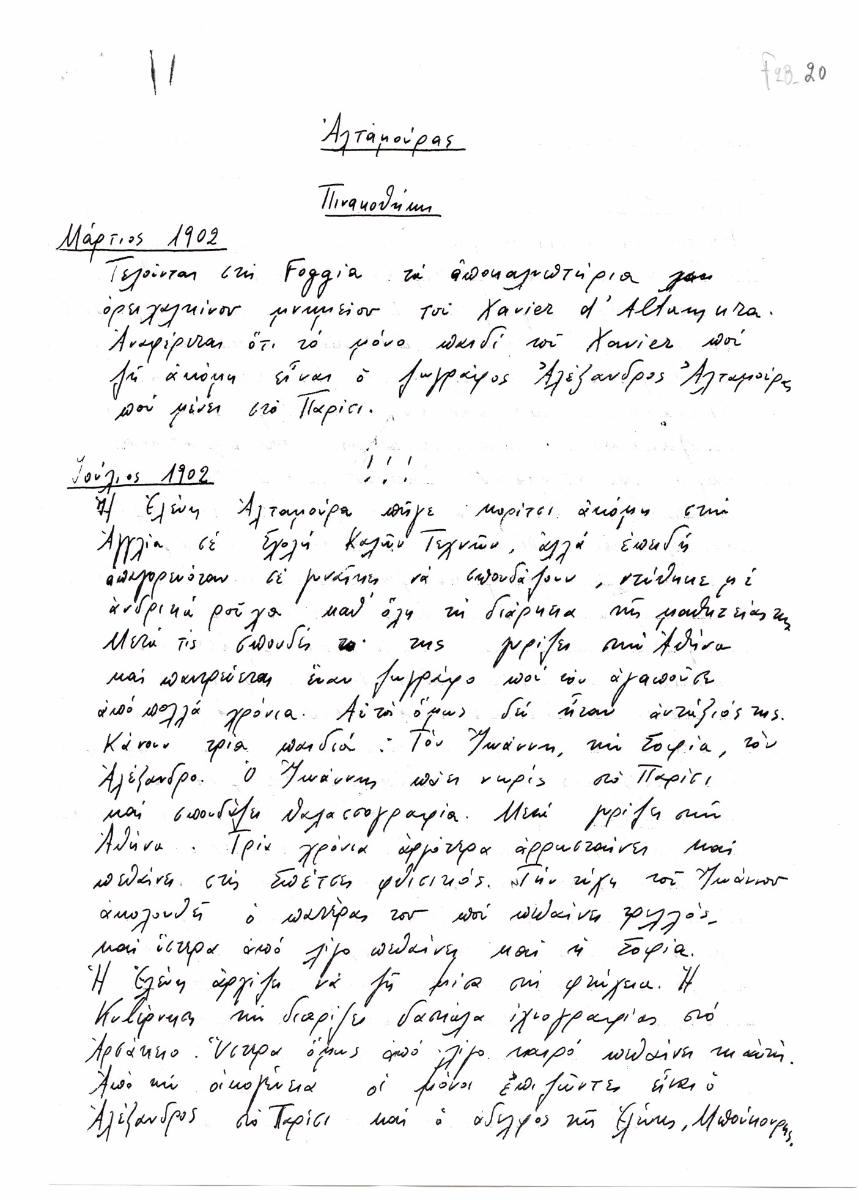 F28-20
Ἀλταμούρας
Πινακοθήκη
Μάρτιος 1902
Τελοῦνται στή Foggia τά ἀποκαλυπτήρια
ὀρειχαλκίνου μνημείου τοῦ Xavier d'Altamura.
Ἀναφέρεται ὅτι τό μόνο παιδί τοῦ Xavier πού
ζῆ ἀκόμη εἶναι ὁ ζωγράφος Ἀλέξανδρος Ἀλταμούρας
πού μένει στό Παρίσι.
! ! !
Ἰούλιος 1902
Ἡ Ἑλένη Ἀλταμούρα πῆγε κορίτσι ἀκόμη στήν
Ἀγγλία σέ Σχολή Καλῶν Τεχνῶν, ἀλλά ἐπειδή
ἀπαγορευόταν σέ γυναῖκες νά σπουδάζουν, ντύθηκε μέ
ἀνδρικά ροῦχα καθ' ὅλη τή διάρκεια τῆς μαθητείας της.
Μετά τίς σπουδές της γυρίζει στήν Ἀθήνα
καί παντρεύεται ἕναν ζωγράφο πού τόν ἀγαποῦσε
ἀπό πολλά χρόνια. Αὐτός ὅμως δέν ἦταν ἀντάξιός της.
Κάνουν τρία παιδιά: Τόν Ἰωάννη, τήν Σοφία, τόν
Ἀλέξανδρο. Ὁ Ἰωάννης πάει νωρίς στό Παρίσι
καί σπουδάζει θαλασσογραφία. Μετά γυρίζει στήν
Ἀθήνα. Τρία χρόνια ἀργότερα ἀρρωσταίνει καί
πεθαίνει στίς Σπέτσες φθισικός. Τήν τύχη τοῦ Ἰωάννου
ἀκολουθεῖ ὁ πατέρας του πού πεθαίνει τρελλός,
καί ὕστερα ἀπό λίγο πεθαίνει καί ἡ Σοφία.
Ἡ Ἑλένη ἀρχίζει νά ζῆ μέσα στή φτώχεια. Ἡ
Κυβέρνηση τήν διορίζει δασκάλα ἰχνογραφίας στό
Ἀρσάκειο. Ὕστερα ὅμως ἀπό λίγο καιρό πεθαίνει κι αὐτή.
Ἀπό τήν οἰκογένεια οἱ μόνοι ἐπιζῶντες εἶναι ὁ
Ἀλέξανδρος στό Παρίσι καί ὁ ἀδελφός τῆς Ἑλένης, Μπούκουρης.